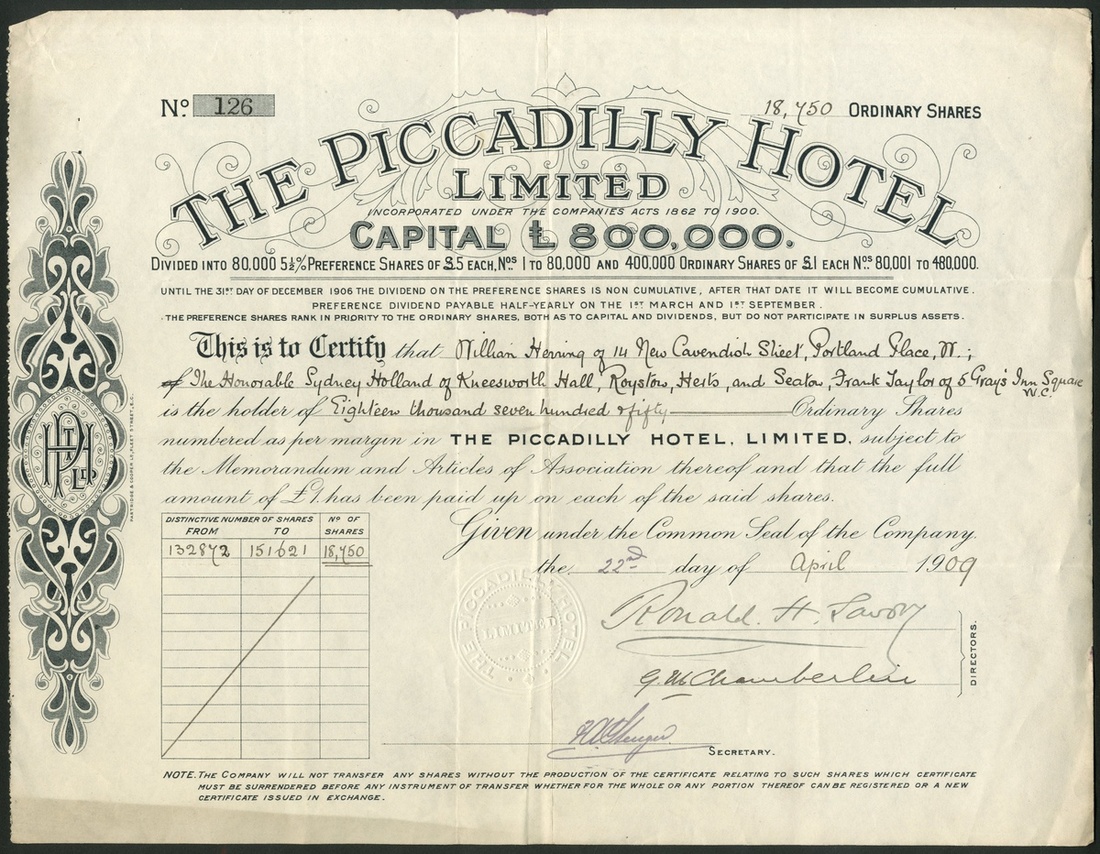 No. 126
18,750 ORDINARY SHARES
THE PICCADILLY HOTEL
LIMITED
INCORPORATED UNDER THE COMPANIES ACTS 1862 TO 1900.
CAPITAL £800,000.
DIVIDED INTO 80,000 5½% PREFERENCE SHARES OF £5 EACH, Nos. 1 TO 80,000 AND 400,000 ORDINARY SHARES OF £1 EACH Nos. 80,001 TO 480,000.
UNTIL THE 31ST DAY OF DECEMBER 1906 THE DIVIDEND ON THE PREFERENCE SHARES IS NON CUMULATIVE, AFTER THAT DATE IT WILL BECOME CUMULATIVE.
PREFERENCE DIVIDEND PAYABLE HALF-YEARLY ON THE 1ST MARCH AND 1ST SEPTEMBER.
THE PREFERENCE SHARES RANK IN PRIORITY TO THE ORDINARY SHARES, BOTH AS TO CAPITAL AND DIVIDENDS, BUT DO NOT PARTICIPATE IN SURPLUS ASSETS.
This is to Certify that William Herring of 14 New Cavendish Street, Portland Place, W.;
of The Honorable Sydney Holland of Kneesworth Hall, Royston, Herts, and Seaton, Frank Taylor of 5 Gray's Inn Square
W.C.
is the holder of Eighteen thousand seven hundred & fifty Ordinary Shares
numbered as per margin in THE PICCADILLY HOTEL, LIMITED, subject to
the Memorandum and Articles of Association thereof and that the full
amount of £1. has been paid up on each of the said shares.
Given under the Common Seal of the Company.
the 22nd day of April 1909
DISTINCTIVE NUMBER OF SHARES
No OF SHARES
FROM TO
132872 151621 18,750
THE PICCADILLY HOTEL
LIMITED
Ronald. H. Savory
G. W. Chamberlin
DIRECTORS.
SECRETARY.
NOTE. THE COMPANY WILL NOT TRANSFER ANY SHARES WITHOUT THE PRODUCTION OF THE CERTIFICATE RELATING TO SUCH SHARES WHICH CERTIFICATE
MUST BE SURRENDERED BEFORE ANY INSTRUMENT OF TRANSFER WHETHER FOR THE WHOLE OR ANY PORTION THEREOF CAN BE REGISTERED OR A NEW
CERTIFICATE ISSUED IN EXCHANGE.
PARTRIDGE & COOPER LD, FLEET STREET, E.C.